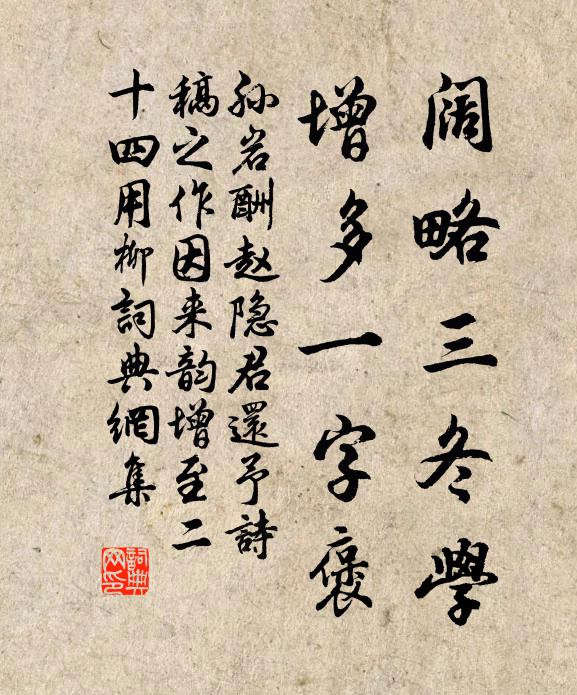 阔略三冬學
增多一字褒
孙岩酬赵隐君還予詩
稿之作因来韵增至二
十四用柳詞典網集
詞典网印